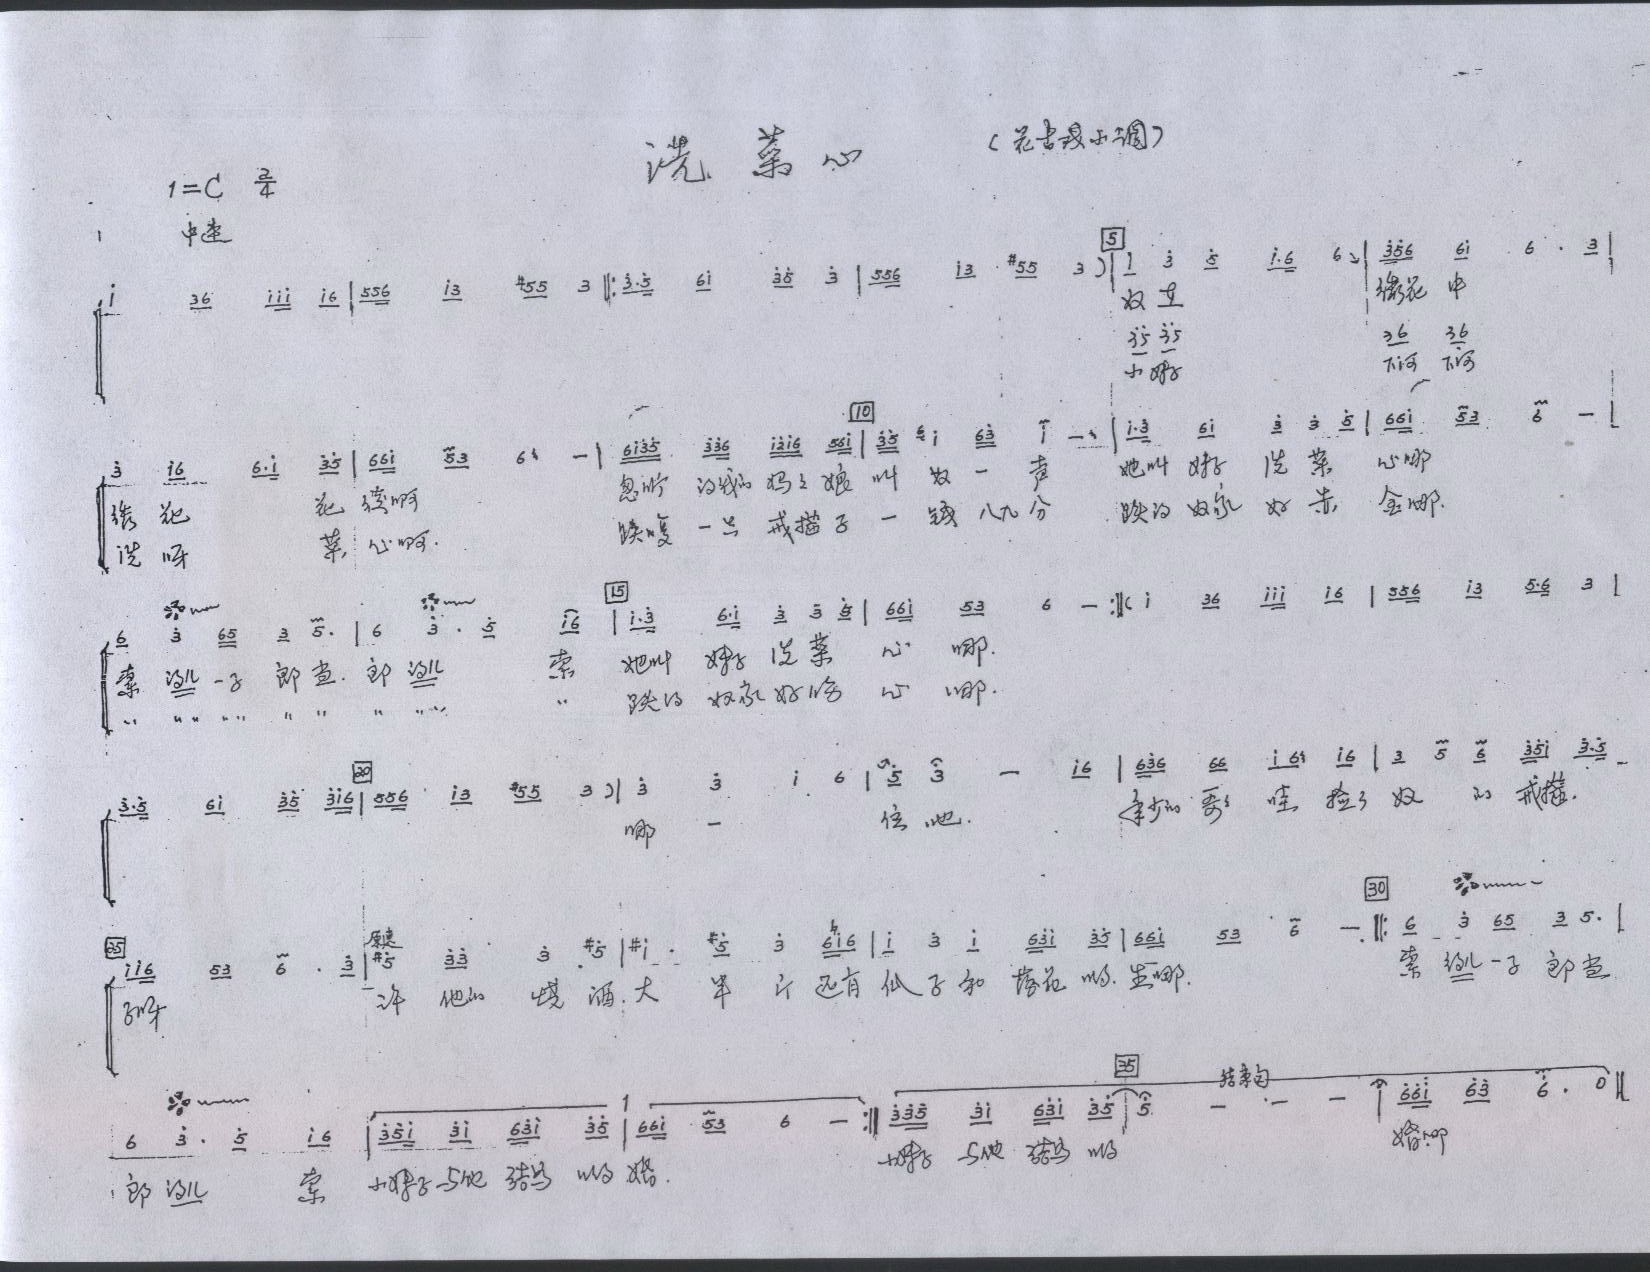 洗菜心 （花古戏小调）
1=C 2/4
中速
5
i 36 iii i6 | 556 i3 #55 3 ‖: 3.5 6i 35 3 | 556 i3 #55 3 ) | i 3 5 i.6 6 | 356 6i 6 . 3 |
奴在 绣花中
35 35 36 36
小妹子 下河 下河
10
3 i6 6.i 35 | 66i 53 6 - | 6i35 336 i2i6 55i | 35 i 63 i - | i.3 6i 3 3 5 | 66i 53 6 - |
绣花 花绫啊 忽听的我的妈々娘叫奴一声 她叫妹子洗菜心哪
洗呀 菜心啊. 一只戒指子一钱八九分 跌的奴家好赤金哪.
15
6 3 65 3 5. | 6 3 . 5 i6 | i.3 6.i 3 3 5 | 66i 53 6 - :‖ ( i 36 iii i6 | 556 i3 5.6 3 |
索得儿一子郎当.郎得儿 索 她叫妹子洗菜心哪.
〃 〃 〃 〃 〃 〃 〃 〃 跌的奴家好伤心哪.
20
3.5 6i 35 3i6 | 556 i3 #55 3 ) | 3 3 i 6 | 5 3 - i6 | 636 66 i 6 i6 | 3 5 6 35i 3.5
哪一位他. 年少的哥々哇捡了奴的戒指.
25 30
原速
ii6 53 6 . 3 | #5 33 3 #5 | #i . #5 3 6i6 | i 3 i 63i 35 | 66i 53 6 - ‖: 6 3 65 3 5. |
子呀 许他的烧酒.大半斤还有瓜子和落花的.生哪. 索得儿一子郎当
35
结束句
6 3 . 5 i6 | 35i 3i 63i 35 | 66i 53 6 - :‖ 335 3i 63i 35 | 5 - - - | 66i 63 6 . 0 ‖
郎得儿 索 小妹子与他结为的婚. 小妹子与他结为的 婚哪